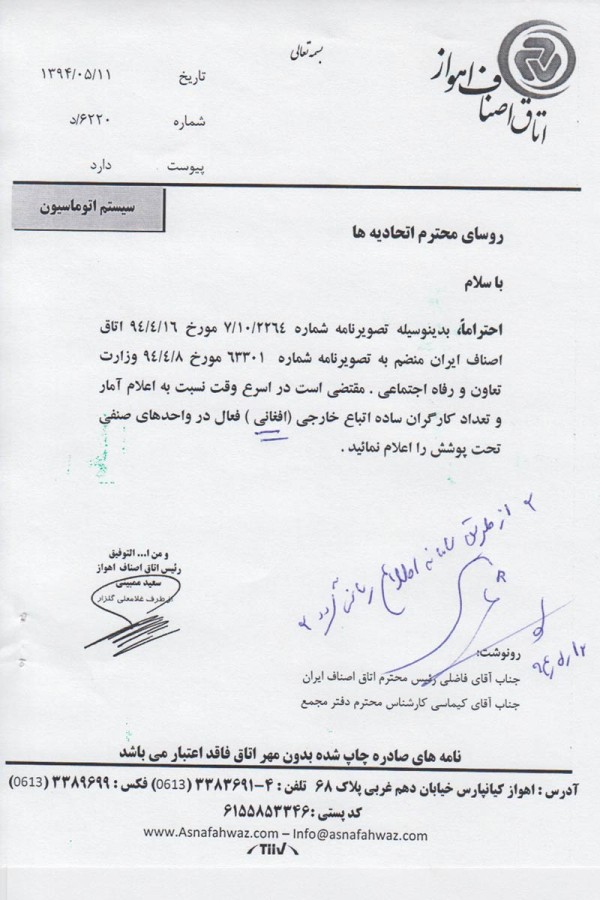 بسمه تعالی
اتاق اصناف اهواز
تاریخ ۱۳۹۴/۰۵/۱۱
شماره ۶۲۲۰/د
پیوست دارد
سیستم اتوماسیون
روسای محترم اتحادیه ها
با سلام
احتراماً، بدینوسیله تصویرنامه شماره ۷/۱۰/۲۲۶۴ مورخ ۹۴/۴/۱۶ اتاق
اصناف ایران منضم به تصویرنامه شماره ۶۳۳۰۱ مورخ ۹۴/۴/۸ وزارت
تعاون و رفاه اجتماعی . مقتضی است در اسرع وقت نسبت به اعلام آمار
و تعداد کارگران ساده اتباع خارجی (افغانی ) فعال در واحدهای صنفی
تحت پوشش را اعلام نمائید .
از طریق سامانه اطلاع رسانی گردد
۹۴/۵/۱۲
و من ا... التوفیق
رئیس اتاق اصناف اهواز
سعید ممبینی
از طرف غلامعلی گلزار
رونوشت:
جناب آقای فاضلی رئیس محترم اتاق اصناف ایران
جناب آقای کیماسی کارشناس محترم دفتر مجمع
نامه های صادره چاپ شده بدون مهر اتاق فاقد اعتبار می باشد
آدرس : اهواز کیانپارس خیابان دهم غربی پلاک ۶۸ تلفن : ۴-۳۳۸۳۶۹۱ (0613) فکس : ۳۳۸۹۶۹۹ (0613)
کد پستی : ۶۱۵۵۸۵۳۳۴۶
www.Asnafahwaz.com – Info@asnafahwaz.com